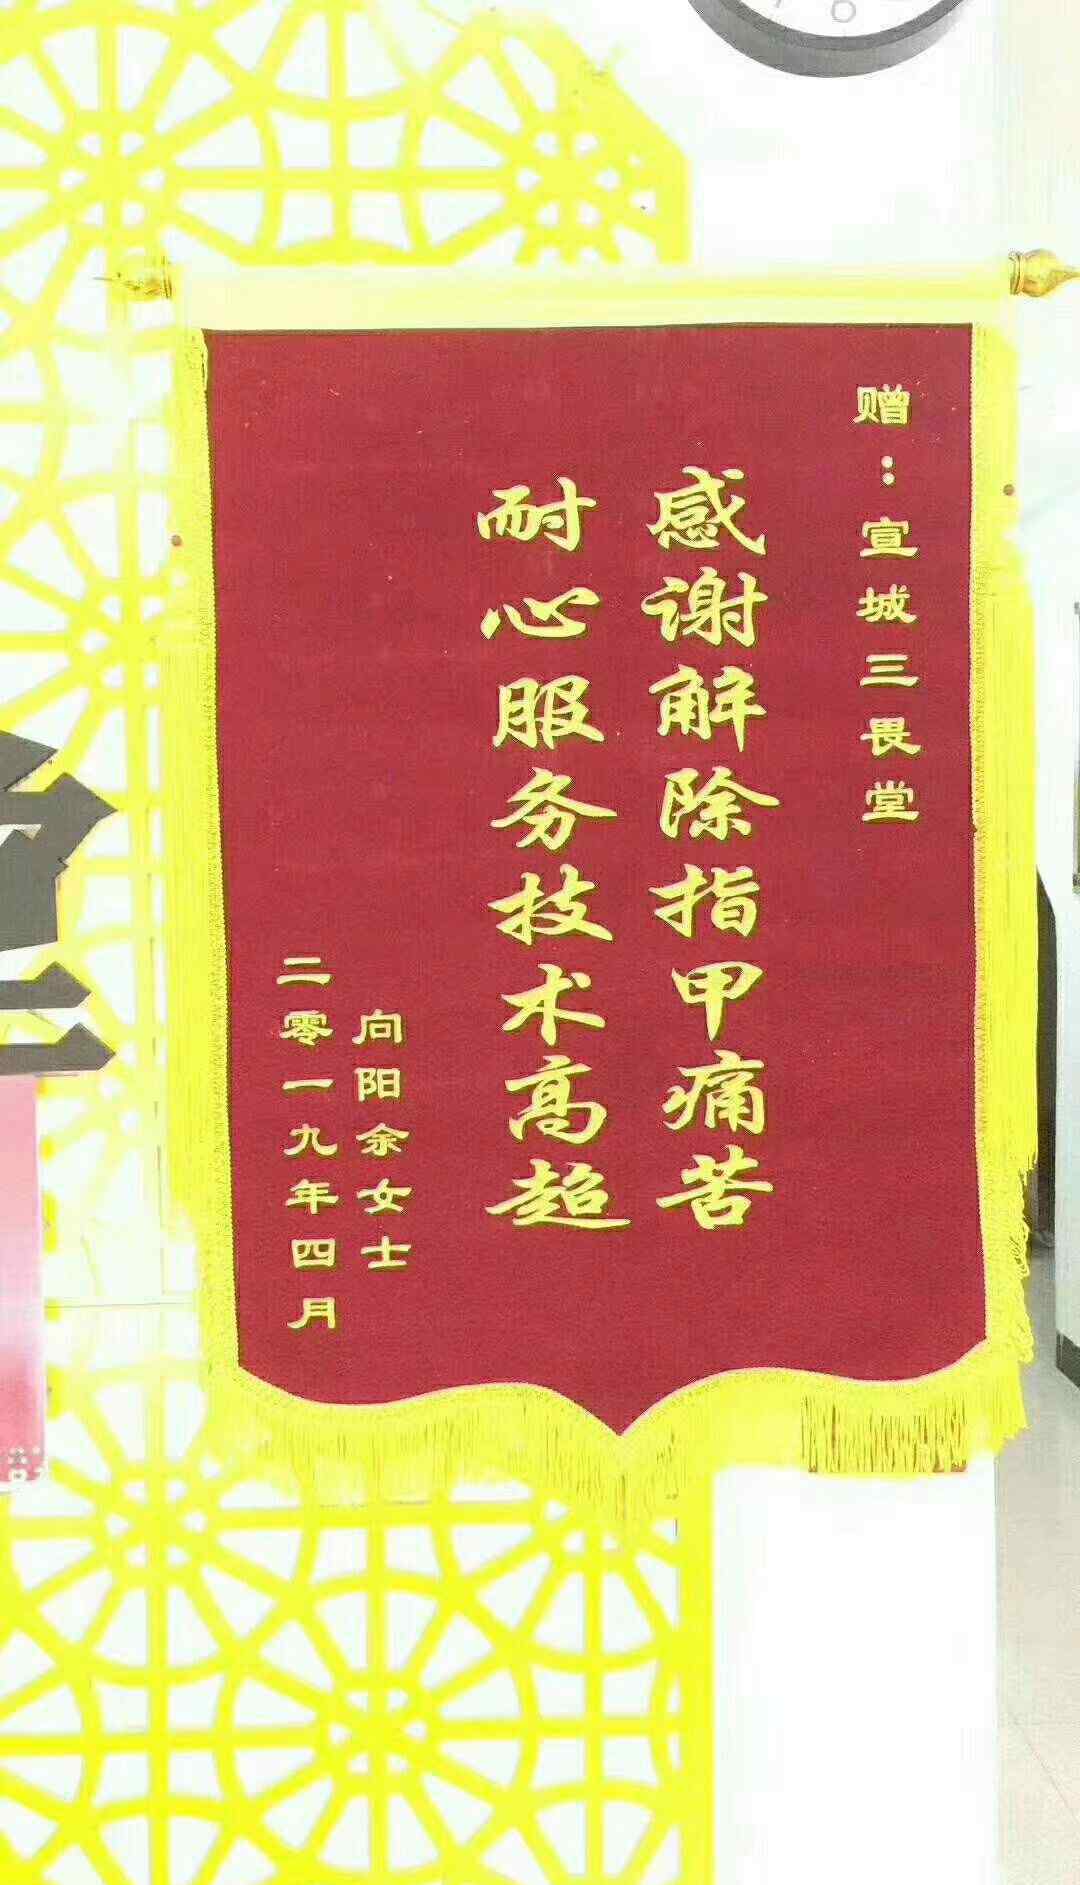 赠：宣城三畏堂
感谢解除指甲痛苦
耐心服务技术高超
向阳余女士
二零一九年四月